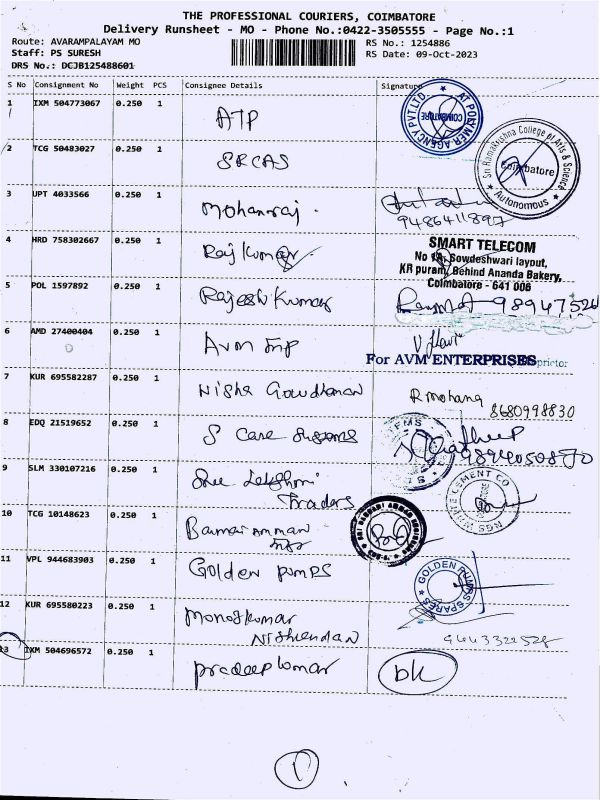 THE PROFESSIONAL COURIERS, COIMBATORE
Delivery Runsheet - MO - Phone No.:0422-3505555 - Page No.:1
Route: AVARAMPALAYAM MO
Staff: PS SURESH
DRS No.: DCJB125488601
RS No.: 1254886
RS Date: 09-Oct-2023
S No Consignment No Weight PCS Consignee Details Signature
1 IXM 504773067 0.250 1 ATP
AT POLYMER AGENCY PVT.LTD. COIMBATORE
2 TCG 50483027 0.250 1 SRCAS
Sri Ramakrishna College of Arts & Science Coimbatore Autonomous
3 UPT 4033566 0.250 1 Mohanraj.
9486411897
4 HRD 758302667 0.250 1 Raj Kumar
SMART TELECOM
No 1A, Sowdeshwari layput,
KR puram, Behind Ananda Bakery,
Coimbalore - 641 006
5 POL 1597892 0.250 1 Rajesh Kumar
98947524
6 AMD 27400404 0.250 1 Avm Imp
For AVM ENTERPRISES
7 KUR 695582287 0.250 1 Nisha Gowdhaman R mohana
8680998830
8 EDQ 21519652 0.250 1 S Care Systems
9 SLM 330107216 0.250 1 Sree Lakshmi
Traders
NGS WHITE CEMENT CO
10 TCG 10148623 0.250 1 Bannari Amman
11 VPL 944683903 0.250 1 Golden pumps
GOLDEN PUMPS SPARES
12 KUR 695580223 0.250 1 Manojkumar
Nishiendan
13 IXM 504696572 0.250 1 pradeep kumar bk
1